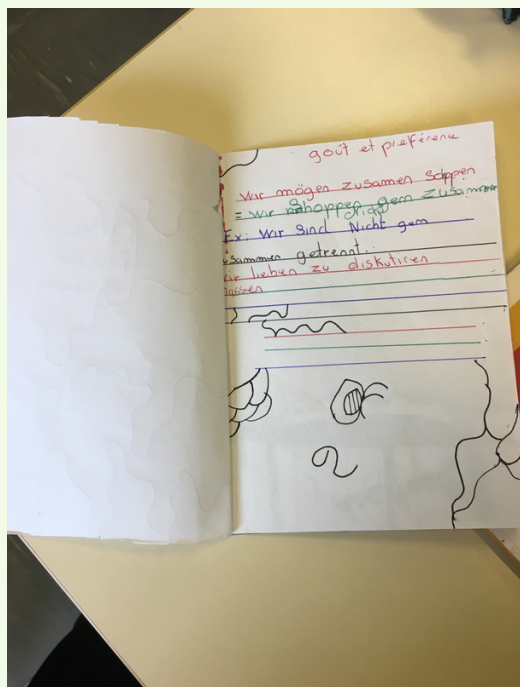 goût et préférence
Wir mögen zusamen Schppen
= Wir schoppen gern zusammen
Ex: Wir sind Nicht gern
zusammen getrennt.
Wir lieben zu diskutiren